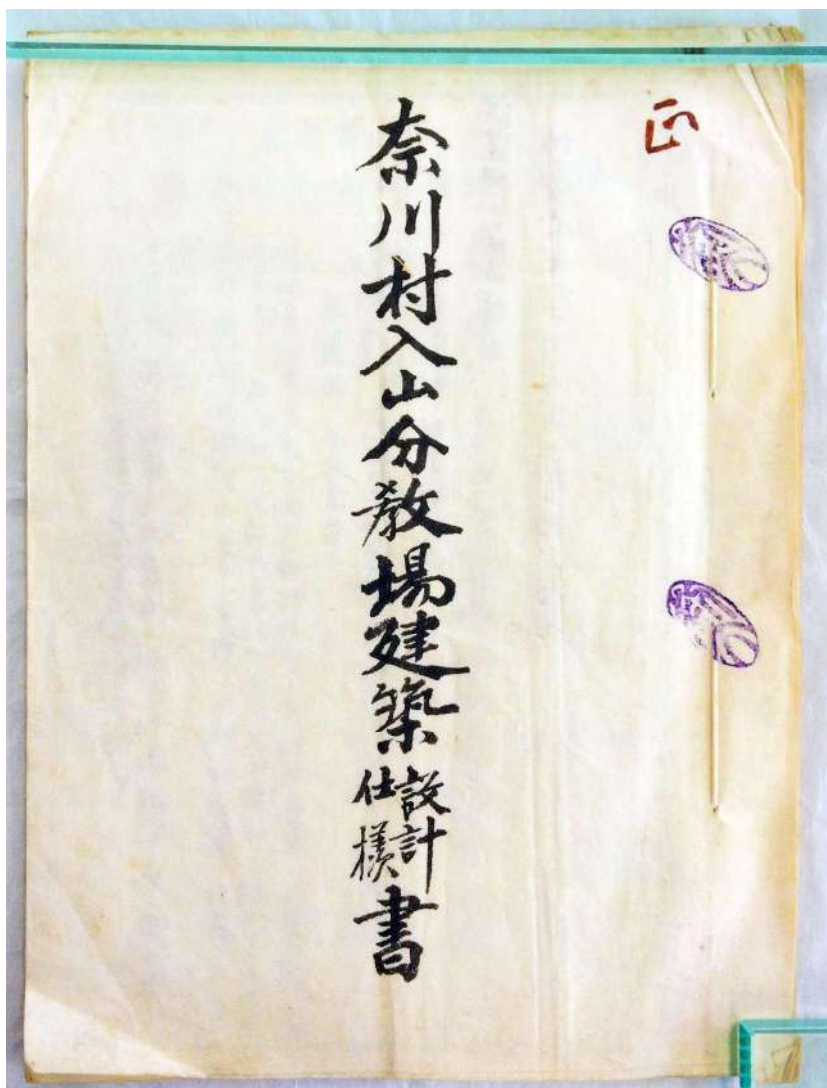 正
奈川村入山分教場建築設計仕様書